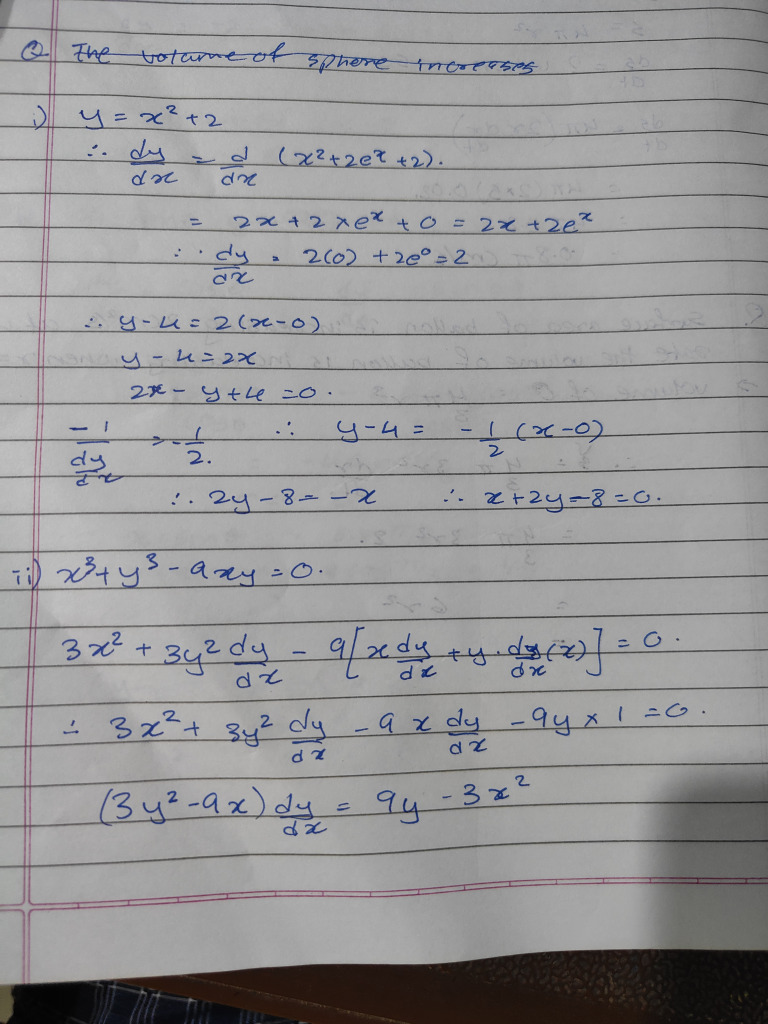 Q The volume of sphere increases
i) y = x² + 2
∴ dy/dx = d/dx (x² + 2eˣ + 2).
= 2x + 2 × eˣ + 0 = 2x + 2eˣ
∴ dy/dx = 2(0) + 2e⁰ = 2
∴ y - 4 = 2(x - 0)
y - 4 = 2x
2x - y + 4 = 0.
-1/(dy/dx) = -1/2. ∴ y - 4 = -1/2 (x - 0)
∴ 2y - 8 = -x ∴ x + 2y - 8 = 0.
ii) x³ + y³ - 9xy = 0.
3x² + 3y² dy/dx - 9[x dy/dx + y · dy/dx (x)] = 0.
∴ 3x² + 3y² dy/dx - 9x dy/dx - 9y × 1 = 0.
(3y² - 9x) dy/dx = 9y - 3x²